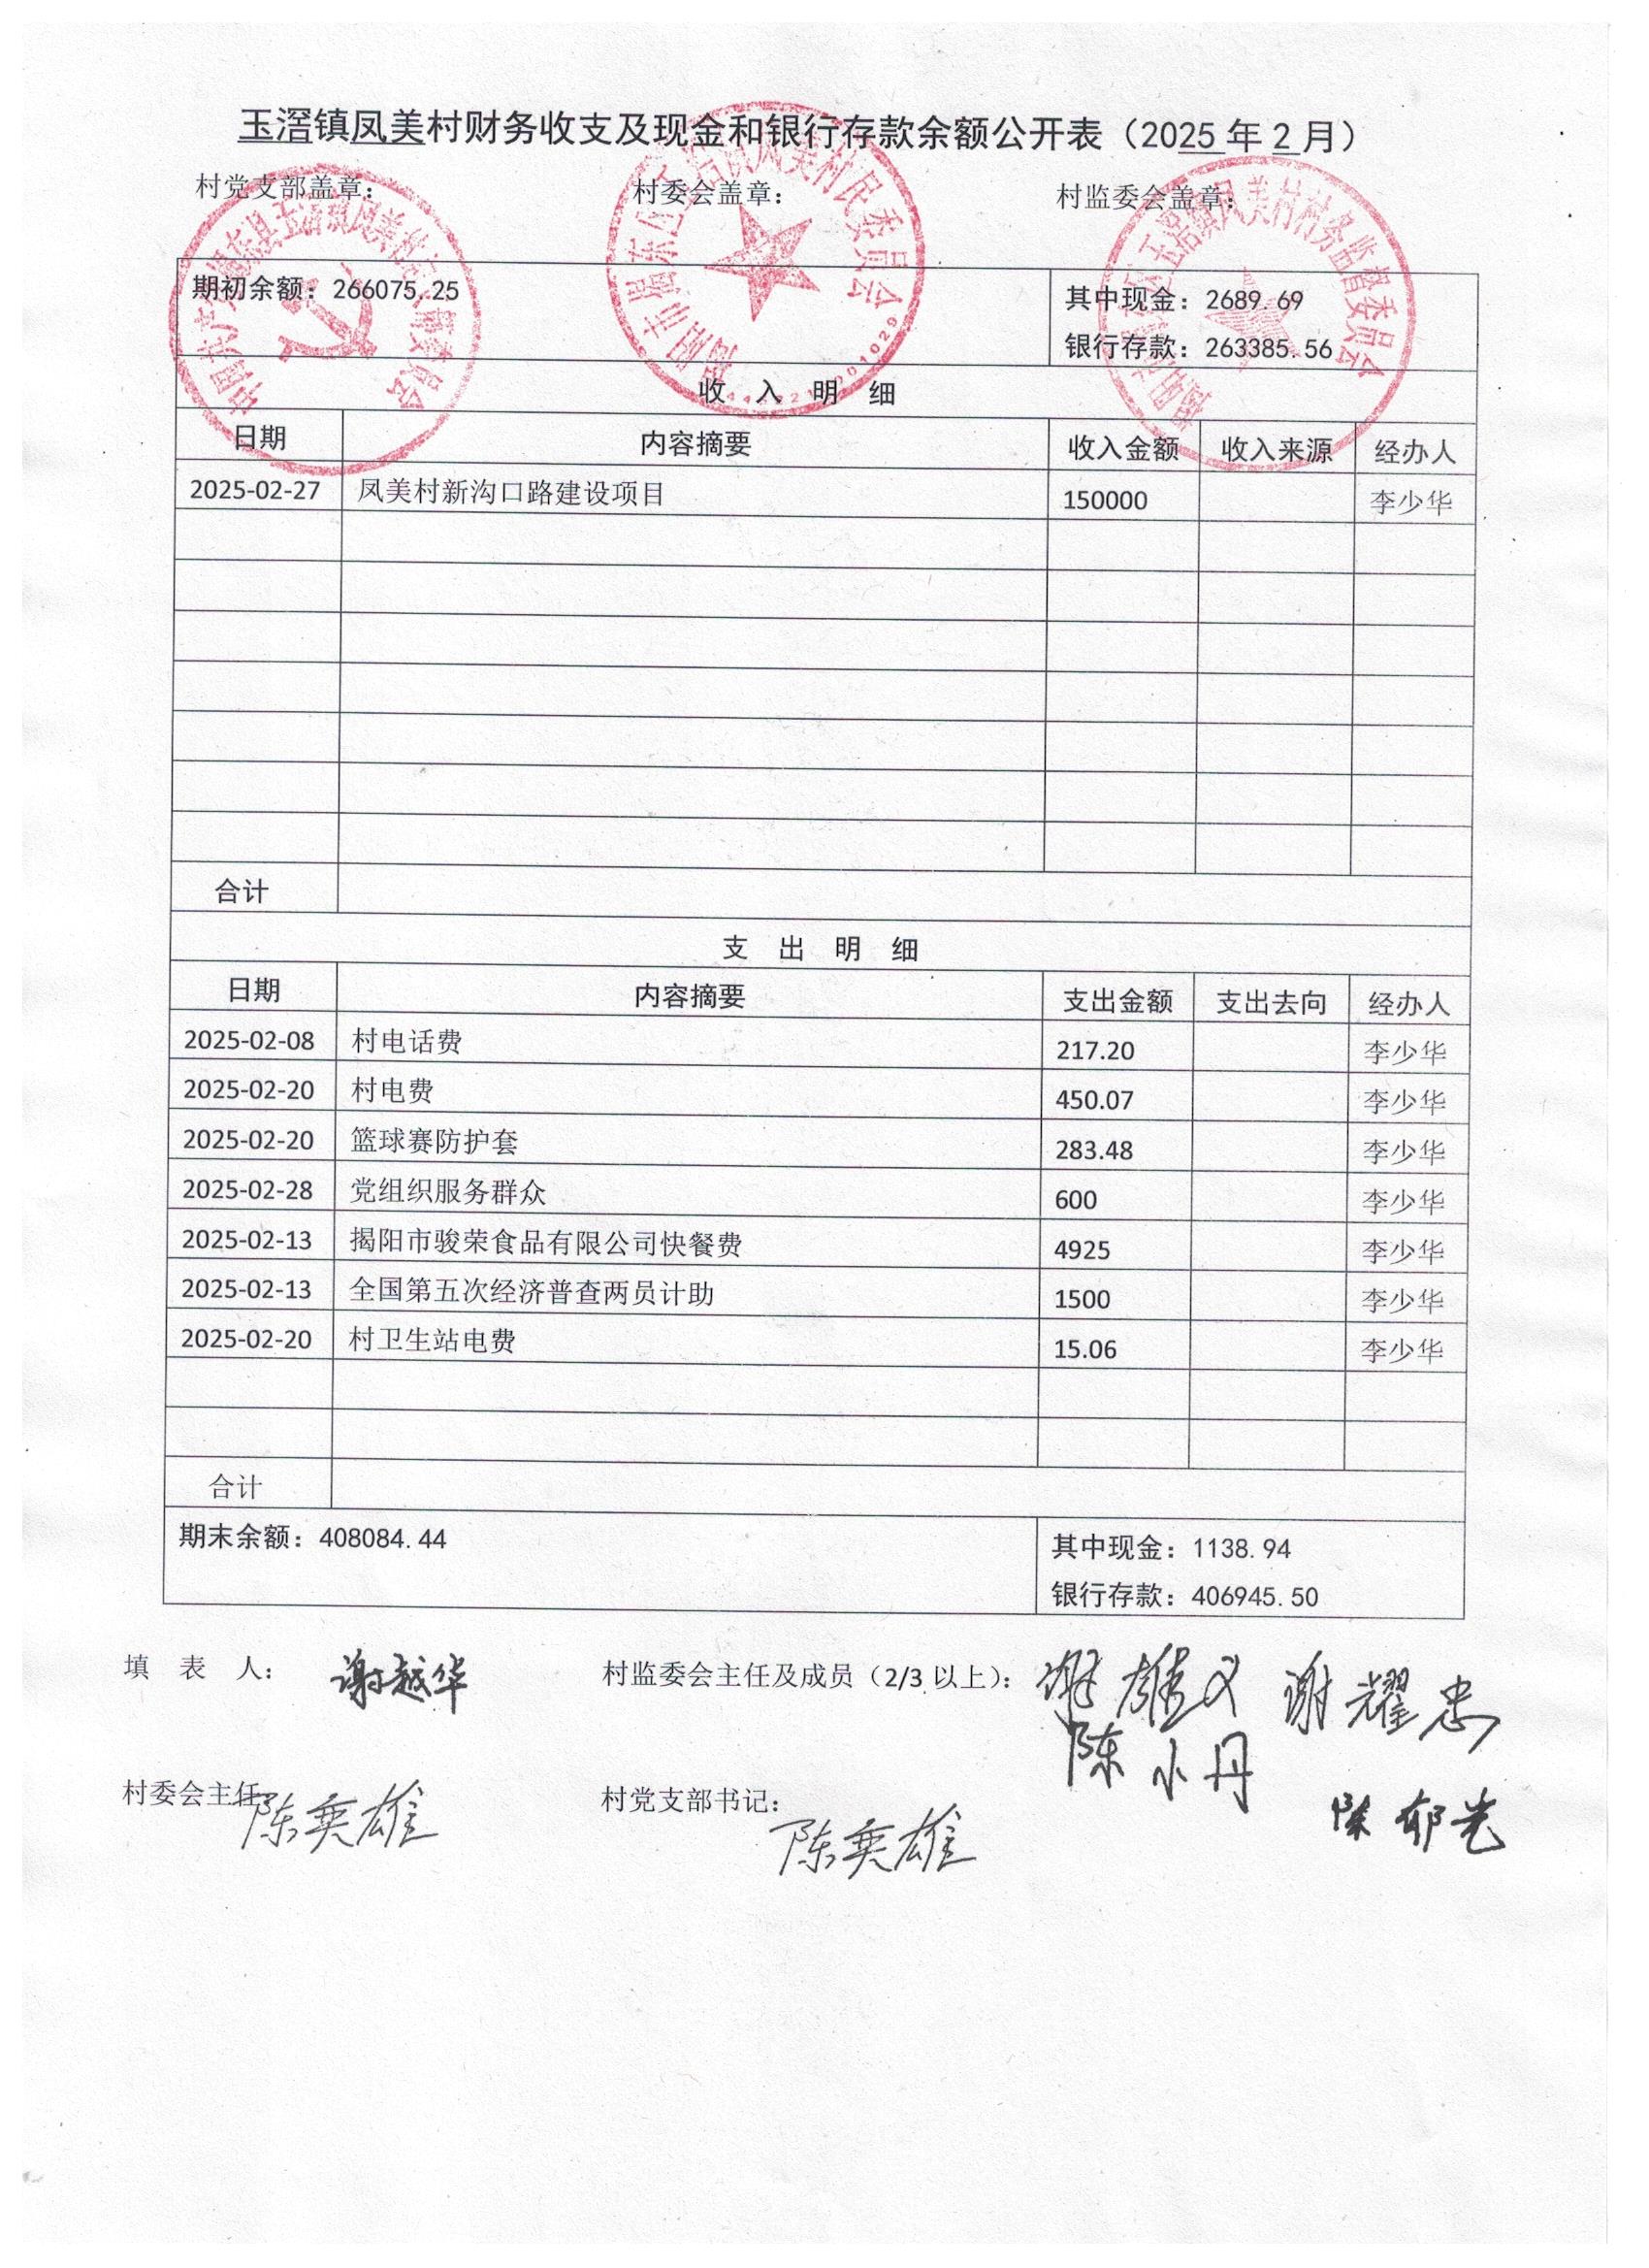 玉滘镇凤美村财务收支及现金和银行存款余额公开表（2025年2月）
村党支部盖章： 村委会盖章： 村监委会盖章：
期初余额：266075.25 其中现金：2689.69
银行存款：263385.56
收 入 明 细
日期 内容摘要 收入金额 收入来源 经办人
2025-02-27 凤美村新沟口路建设项目 150000 李少华
合计
支 出 明 细
日期 内容摘要 支出金额 支出去向 经办人
2025-02-08 村电话费 217.20 李少华
2025-02-20 村电费 450.07 李少华
2025-02-20 篮球赛防护套 283.48 李少华
2025-02-28 党组织服务群众 600 李少华
2025-02-13 揭阳市骏荣食品有限公司快餐费 4925 李少华
2025-02-13 全国第五次经济普查两员计助 1500 李少华
2025-02-20 村卫生站电费 15.06 李少华
合计
期末余额：408084.44 其中现金：1138.94
银行存款：406945.50
填 表 人： 谢越华 村监委会主任及成员（2/3以上）： 谢雄义 谢耀忠
陈小丹
村委会主任 陈奕雄 村党支部书记： 陈奕雄 陈郁光